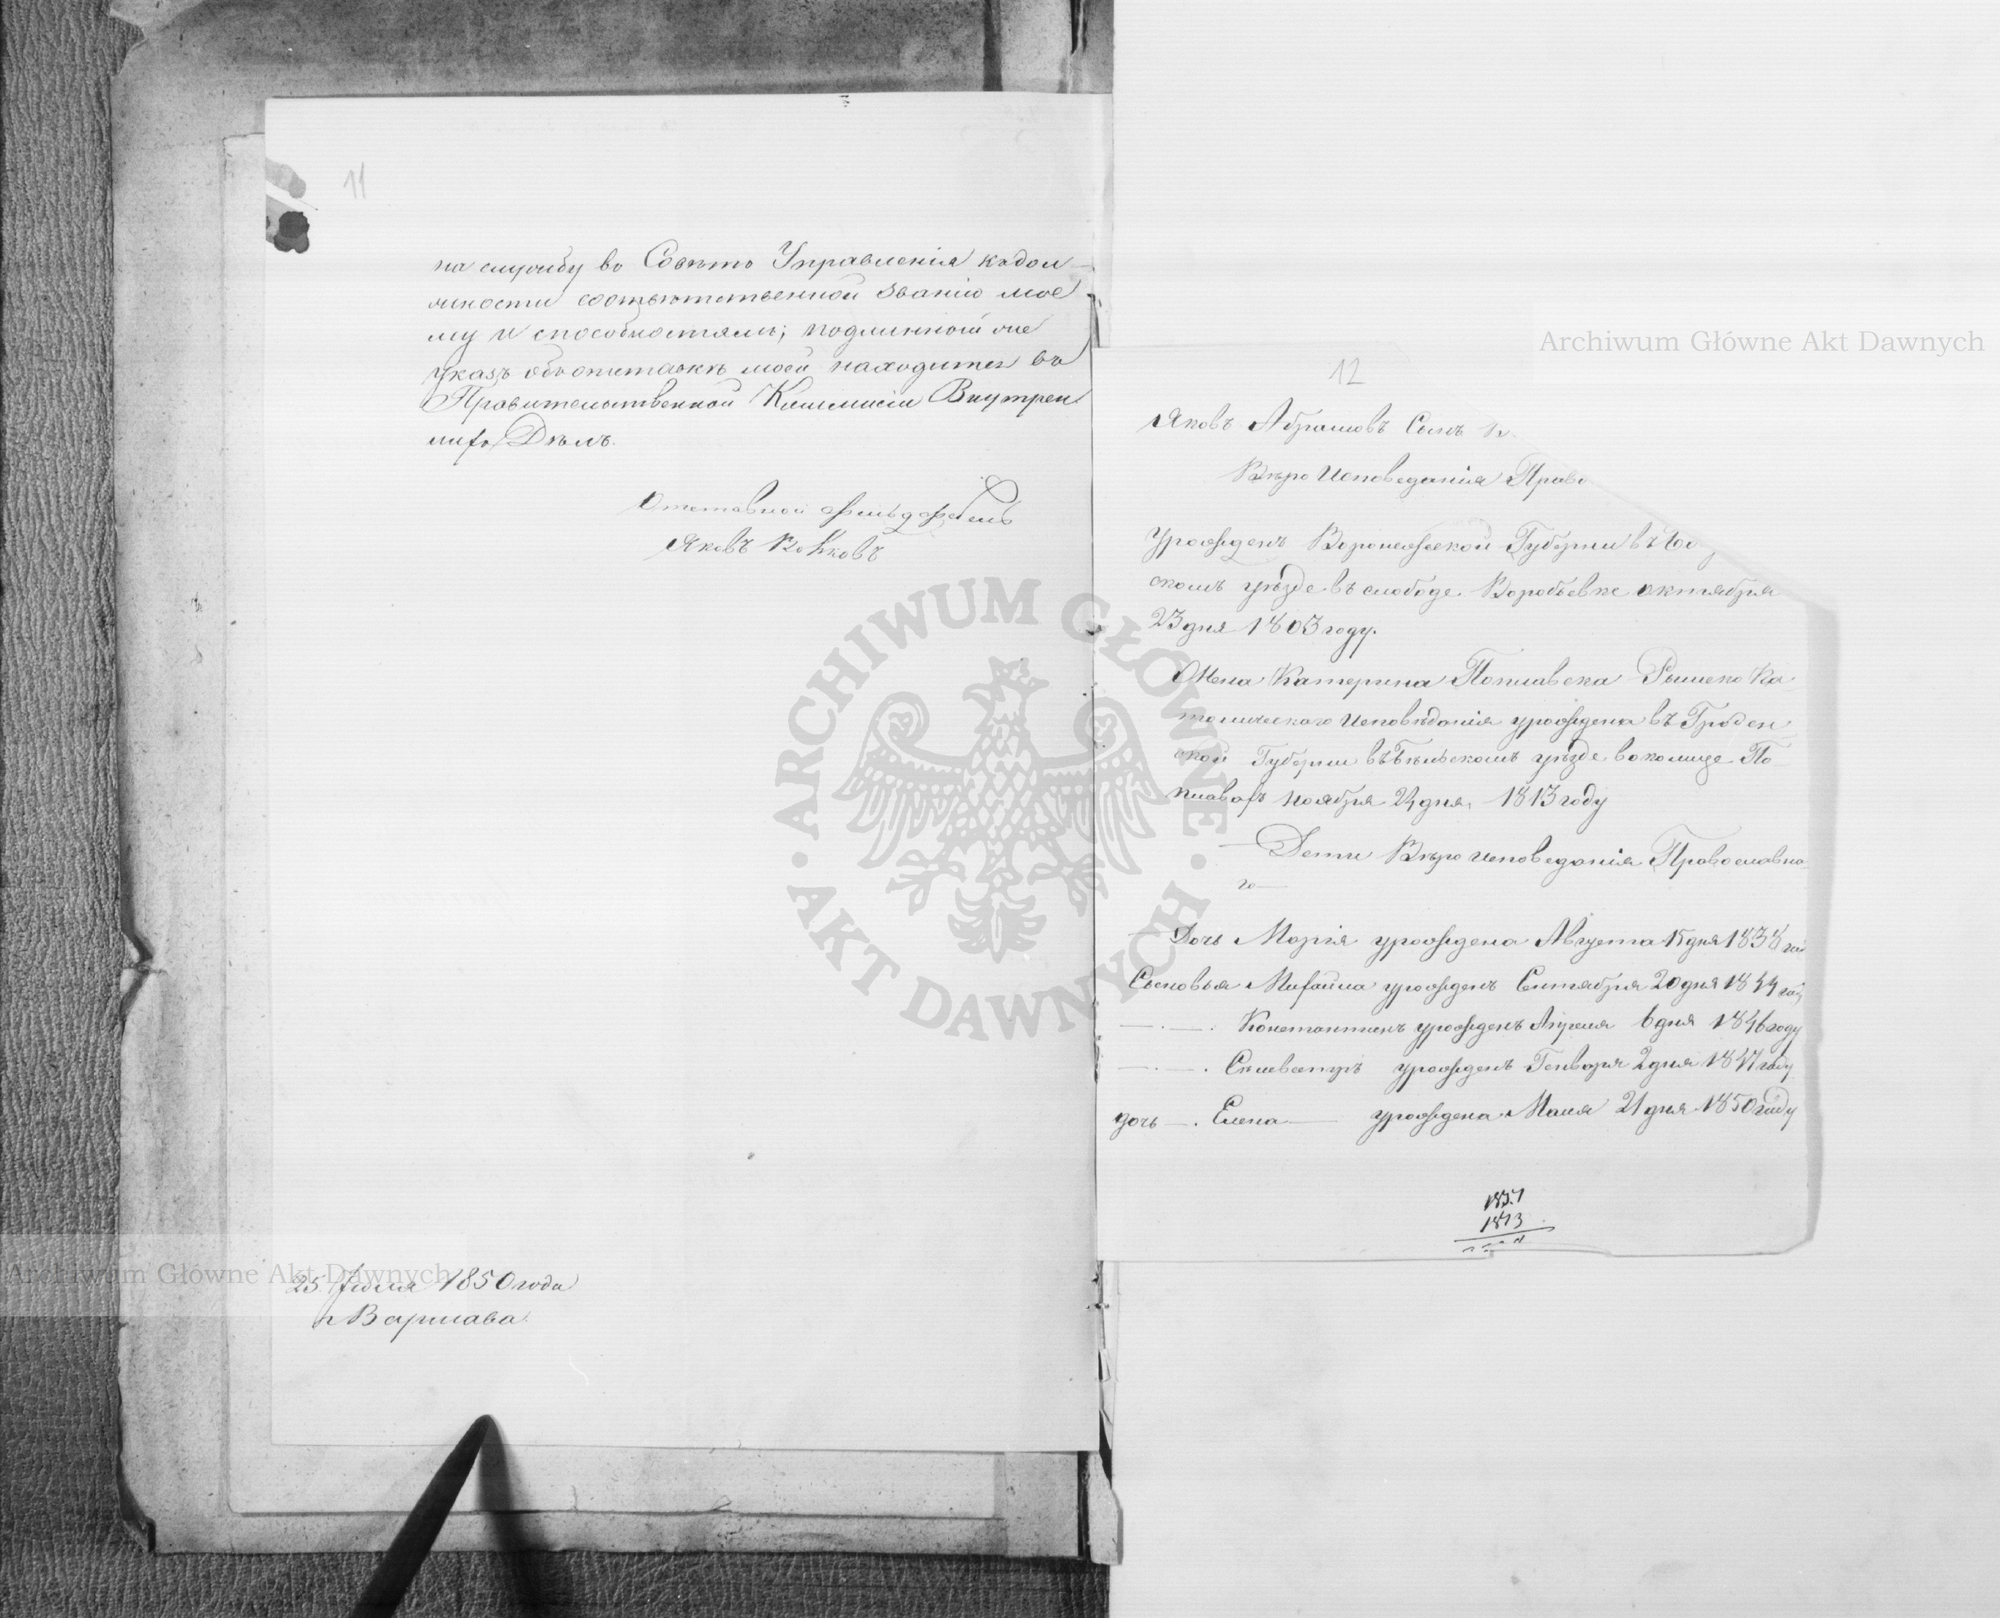 11
на службу во Советѣ Управленія къ дол-
жности соотвѣтственной званію мое
му и способностямъ; подлинной же
указъ объ отставкѣ моей находится въ
Правительственной Коммисіи Внутрен
нихъ Дѣлъ.
Отставной фельдфебель
Яковъ
25. Іюля 1850 года
г Варшава.
12
Яковъ Абрамовъ Сынъ
Вѣро Исповеданія Право
Урожденъ Воронежской Губерни въ Бо
скомъ уѣзде въ слободе Воробьевке октября
23 дня 1803 году.
Жена Катерина Поплавска Римско Ка
толическаго исповѣданія урождена въ Гроден
ской Губерни въ Бѣльскомъ уѣзде в околице По
плавахъ ноября 24 дня, 1813 году
Дети Вѣро исповеданія Православна
го
Дочь Марія урождена Августа 15 дня 1838 году
Сыновья Михайла урожденъ Сентября 20 дня 1844 году
— . — . Константинъ урожденъ Апреля 6 дня 1846 году
— . — . Силвестръ урожденъ Генваря 2 дня 1847 году
дочь — . Елена — урождена Маия 21 дня 1850 году
1851
1813
ARCHIWUM GŁÓWNE AKT DAWNYCH
Archiwum Główne Akt Dawnych
Archiwum Główne Akt Dawnych